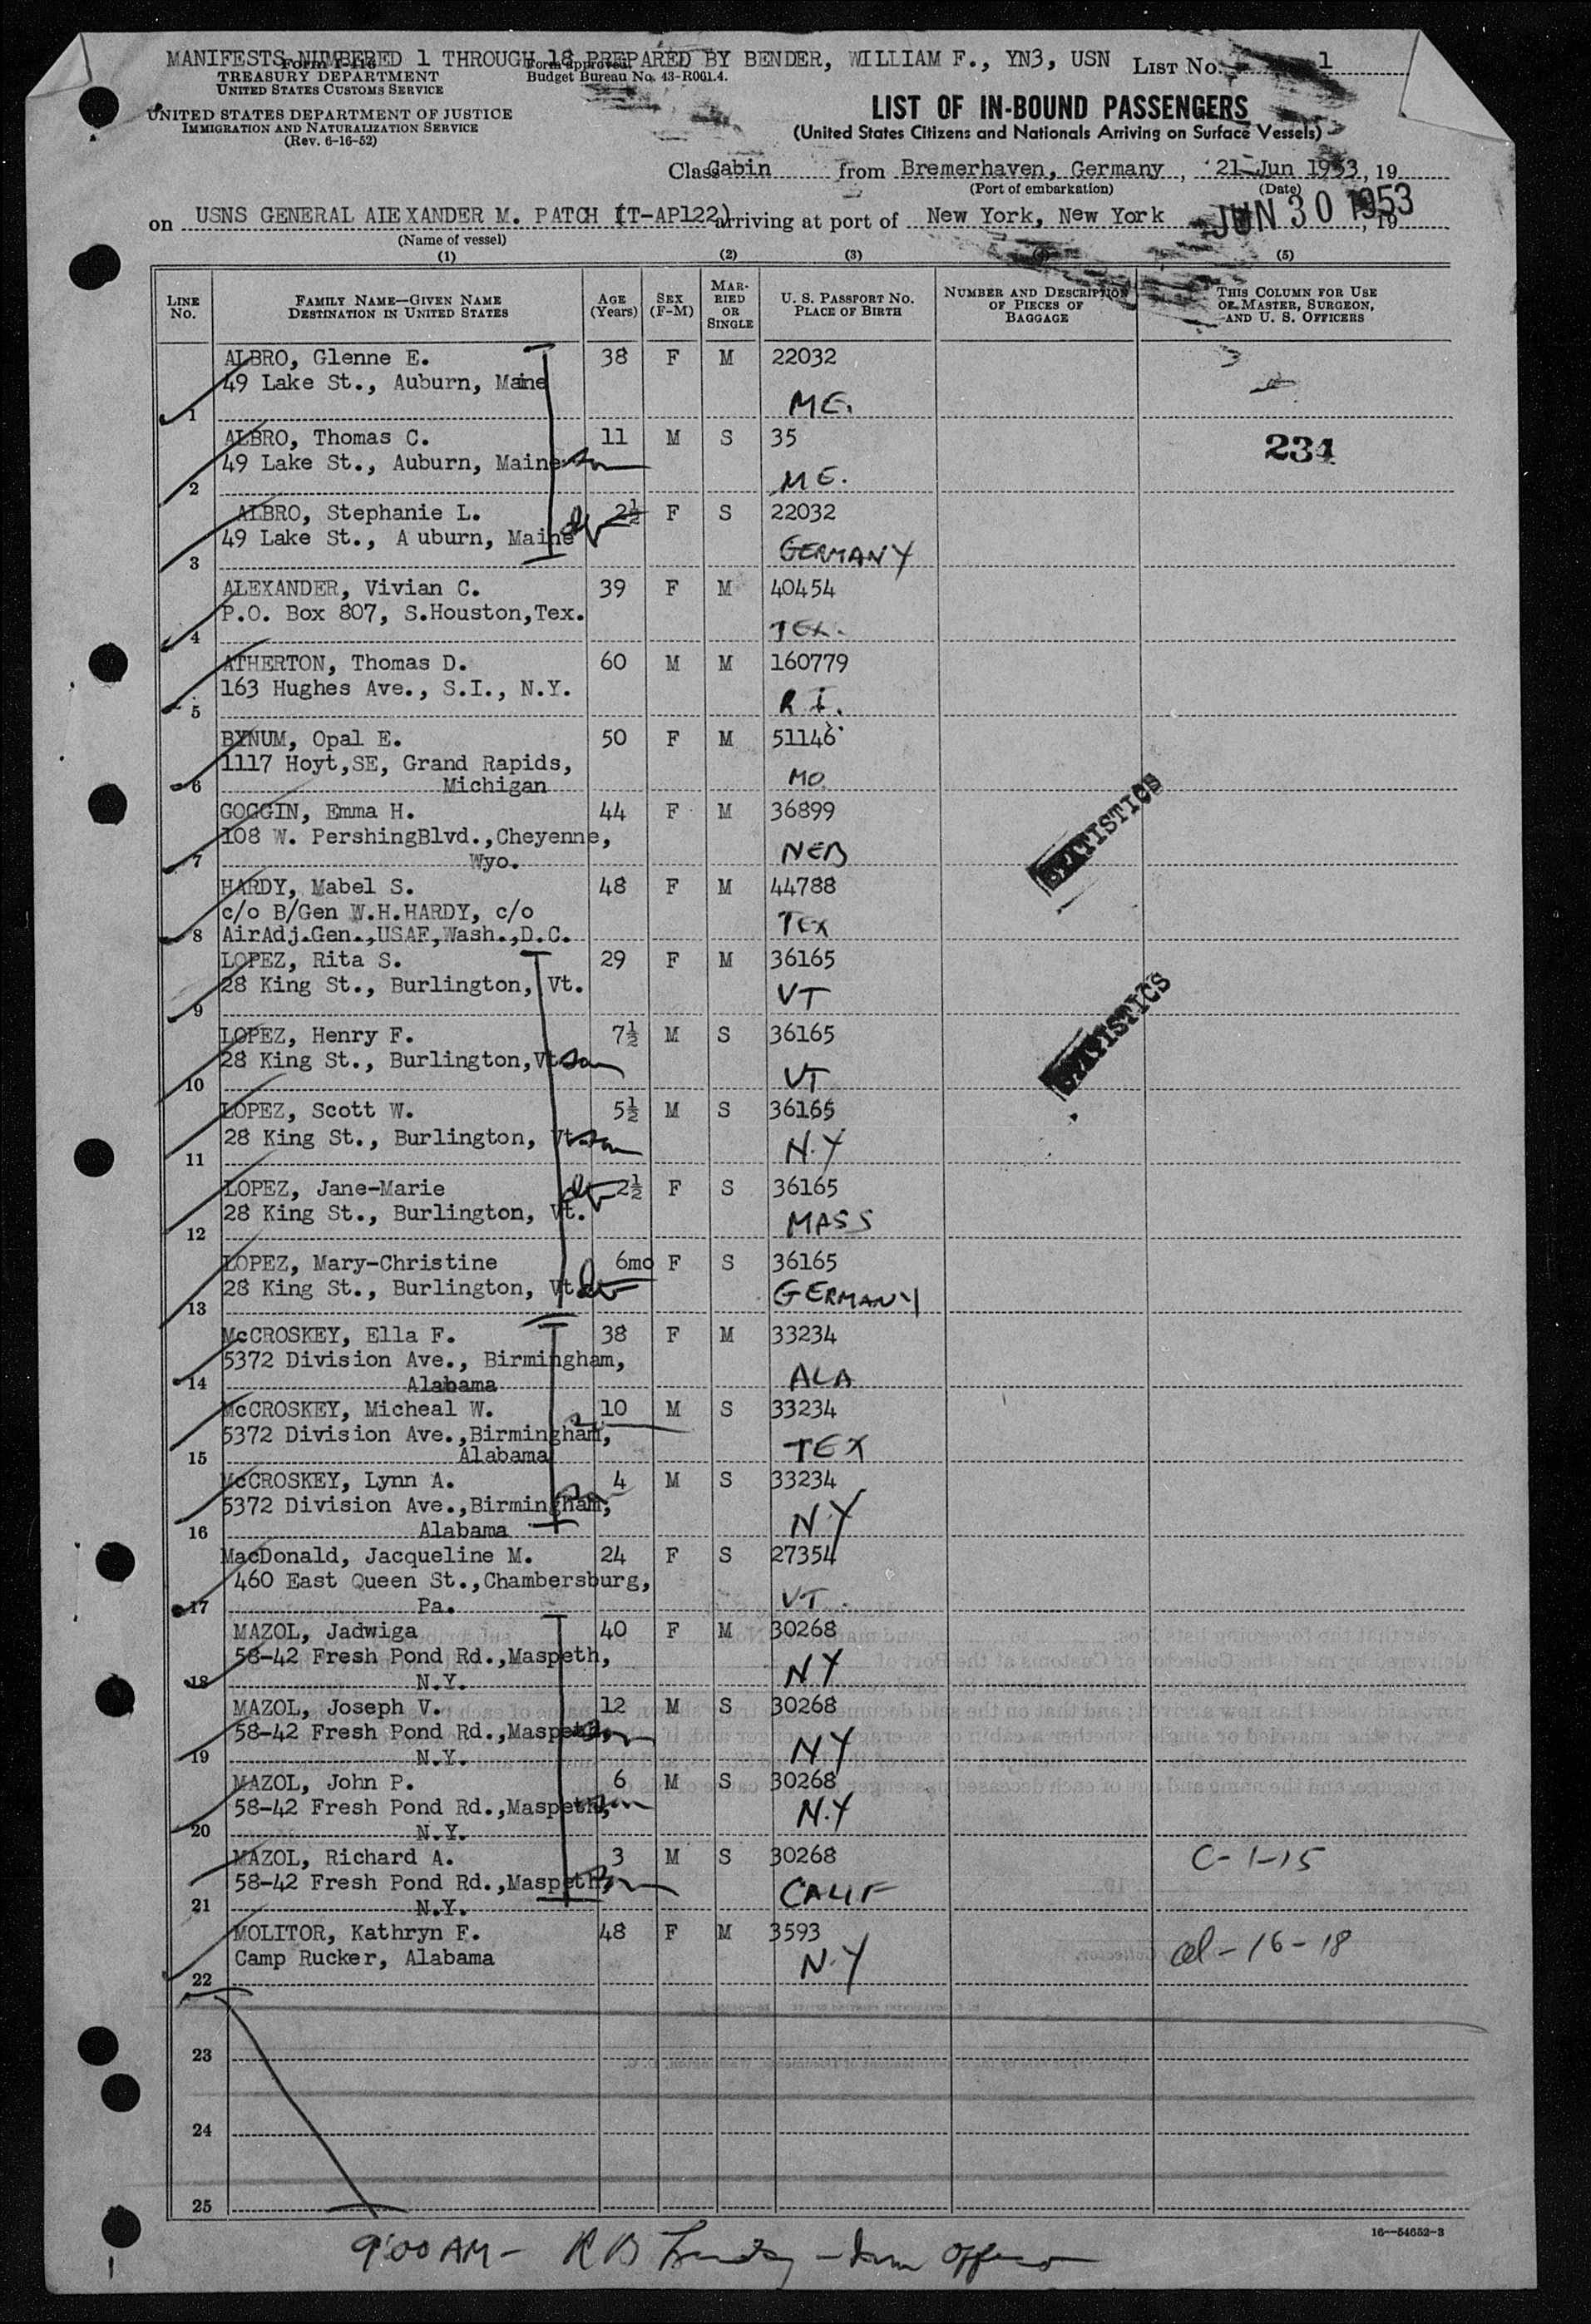 MANIFESTS NUMBERED 1 THROUGH 18 PREPARED BY BENDER, WILLIAM F., YN3, USN LIST No. 1
Form I-416 Form approved.
TREASURY DEPARTMENT Budget Bureau No. 43-R001.4.
UNITED STATES CUSTOMS SERVICE
UNITED STATES DEPARTMENT OF JUSTICE
IMMIGRATION AND NATURALIZATION SERVICE
(Rev. 6-16-52)
LIST OF IN-BOUND PASSENGERS
(United States Citizens and Nationals Arriving on Surface Vessels)
Class Cabin from Bremerhaven, Germany, 21 Jun 1953, 19
(Port of embarkation) (Date)
on USNS GENERAL AlEXANDER M. PATCH (T-AP122) arriving at port of New York, New York JUN 30 1953, 19
(Name of vessel)
(1) (2) (3) (4) (5)
LINE No. FAMILY NAME—GIVEN NAME DESTINATION IN UNITED STATES AGE (Years) SEX (F-M) MARRIED OR SINGLE U. S. PASSPORT No. PLACE OF BIRTH NUMBER AND DESCRIPTION OF PIECES OF BAGGAGE THIS COLUMN FOR USE OF MASTER, SURGEON, AND U. S. OFFICERS
ALBRO, Glenne E. 38 F M 22032
49 Lake St., Auburn, Maine
1 ME.
ALBRO, Thomas C. 11 M S 35 234
49 Lake St., Auburn, Maine son
2 ME.
ALBRO, Stephanie L. 2½ F S 22032
49 Lake St., A uburn, Maine
3 GERMANY
ALEXANDER, Vivian C. 39 F M 40454
P.O. Box 807, S.Houston,Tex.
4 TEX.
ATHERTON, Thomas D. 60 M M 160779
163 Hughes Ave., S.I., N.Y.
5 R I.
BYNUM, Opal E. 50 F M 51146
1117 Hoyt,SE, Grand Rapids,
6 Michigan MO.
GOGGIN, Emma H. 44 F M 36899
108 W. PershingBlvd.,Cheyenne,
7 Wyo. NEB
STATISTICS
HARDY, Mabel S. 48 F M 44788
c/o B/Gen W.H.HARDY, c/o
8 AirAdj.Gen.,USAF,Wash.,D.C. TEX
LOPEZ, Rita S. 29 F M 36165
28 King St., Burlington, Vt.
9 VT
STATISTICS
LOPEZ, Henry F. 7½ M S 36165
28 King St., Burlington,Vt son
10 VT
LOPEZ, Scott W. 5½ M S 36165
28 King St., Burlington, Vt. son
11 N.Y
LOPEZ, Jane-Marie 2½ F S 36165
28 King St., Burlington, Vt.
12 MASS
LOPEZ, Mary-Christine 6mo F S 36165
28 King St., Burlington, Vt.
13 GERMANY
McCROSKEY, Ella F. 38 F M 33234
5372 Division Ave., Birmingham,
14 Alabama ALA
McCROSKEY, Micheal W. 10 M S 33234
5372 Division Ave.,Birmingham,
15 Alabama TEX
McCROSKEY, Lynn A. 4 M S 33234
5372 Division Ave.,Birmingham,
16 Alabama N.Y
MacDonald, Jacqueline M. 24 F S 27354
460 East Queen St.,Chambersburg,
17 Pa. VT.
MAZOL, Jadwiga 40 F M 30268
58-42 Fresh Pond Rd.,Maspeth,
18 N.Y. NY
MAZOL, Joseph V. 12 M S 30268
58-42 Fresh Pond Rd.,Maspeth, son
19 N.Y. NY
MAZOL, John P. 6 M S 30268
58-42 Fresh Pond Rd.,Maspeth, son
20 N.Y. N.Y
MAZOL, Richard A. 3 M S 30268 C-1-15
58-42 Fresh Pond Rd.,Maspeth, son
21 N.Y. CALIF
MOLITOR, Kathryn F. 48 F M 3593
Camp Rucker, Alabama -16-18
22 N.Y
23
24
25
16—54652-3
9:00 AM - R B